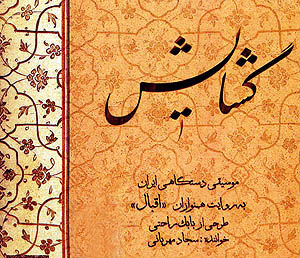 گشایش
موسیقی دستگاهی ایران
به روایت همنوازان «اقبال»
طرحی از بابک راحتی
خواننده : سجاد مهربانی